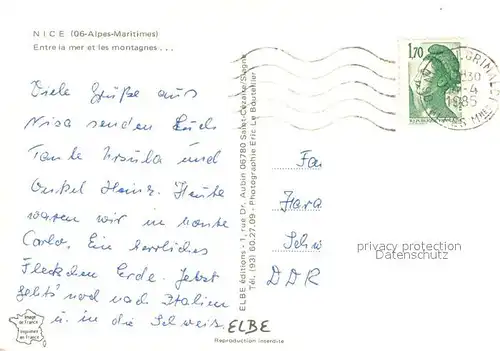 NICE (06-Alpes-Maritimes)
Entre la mer et les montagnes...
Viele Grüße aus
Niza senden Euch
Tante Ursula und
Onkel Heinz. Heute
waren wir in Monte
Carlo. Ein herrliches
Fleckchen Erde. Jetzt
geht's noch nach Italien
u. in die Schweiz.
ELBE éditions - 1, rue Dr. Aubin 06780 Saint-Cézaire/Siagne
Tél. (93) 60.27.09 - Photographie Eric Le Bouteiller
1,70
1985
Fam
Hara
Schw
DDR
privacy protection
www.ansichtskarten-center.de
Image de France
ELBE
Reproduction interdite